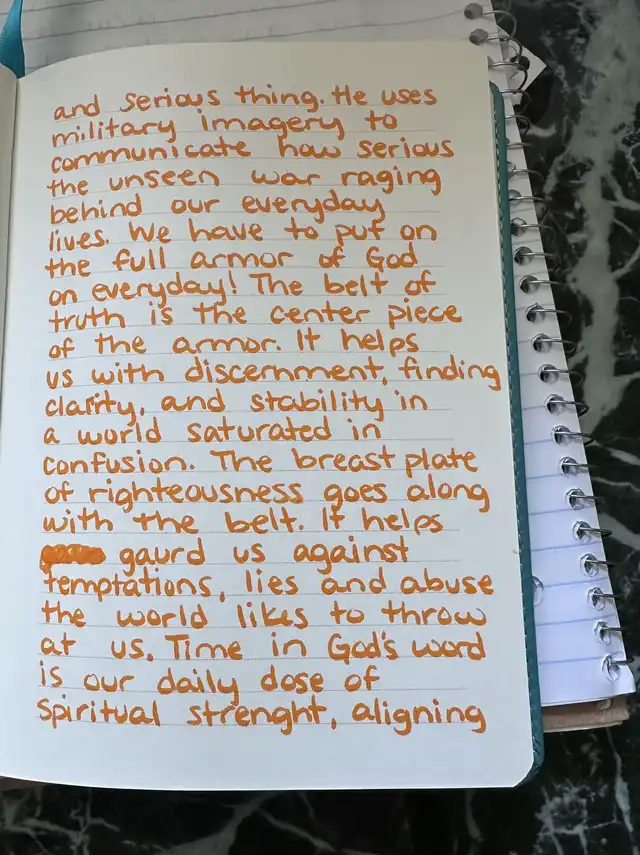 and serious thing. He uses
military imagery to
communicate how serious
the unseen war raging
behind our everyday
lives. We have to put on
the full armor of God
on everyday! The belt of
truth is the center piece
of the armor. It helps
us with discernment, finding
clarity, and stability in
a world saturated in
confusion. The breast plate
of righteousness goes along
with the belt. It helps
gaurd us against
temptations, lies and abuse
the world likes to throw
at us. Time in God's word
is our daily dose of
spiritual strenght, aligning